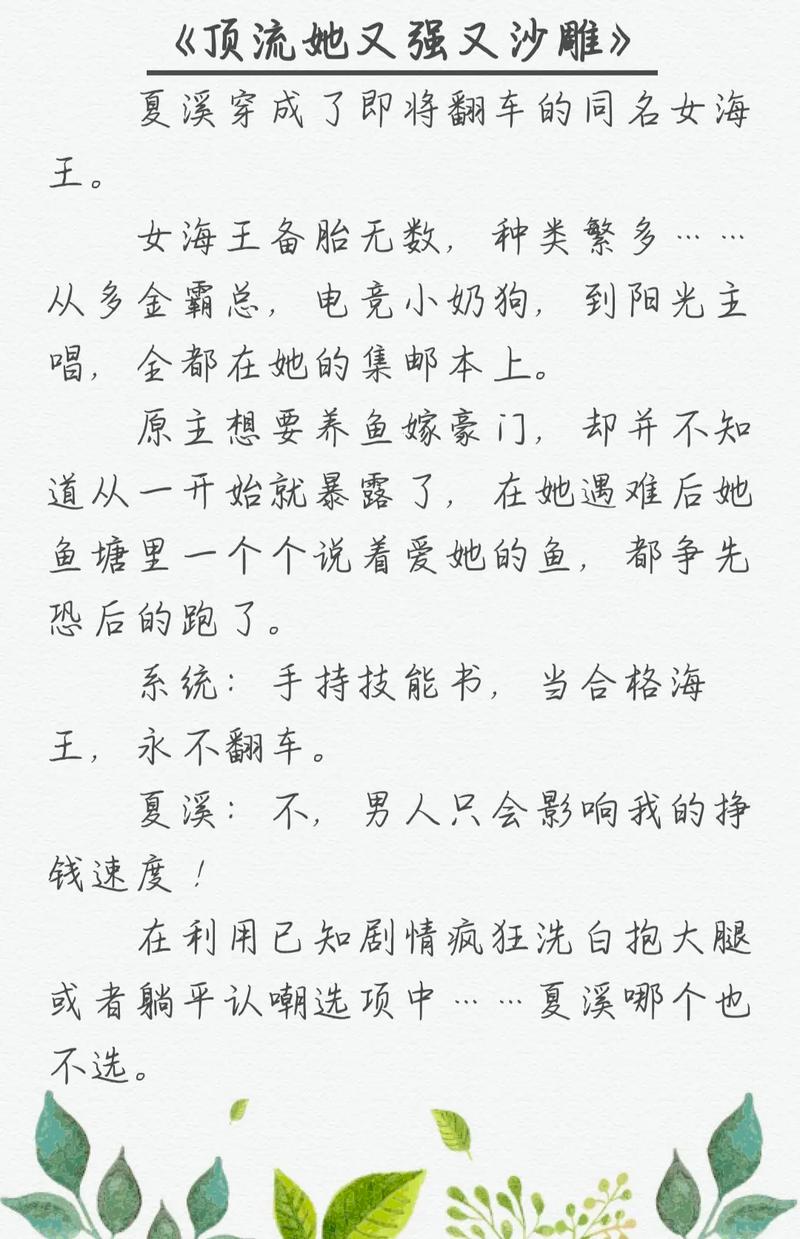 《顶流她又强又沙雕》
夏溪穿成了即将翻车的同名女海
王。
女海王备胎无数，种类繁多……
从多金霸总，电竞小奶狗，到阳光主
唱，全都在她的集邮本上。
原主想要养鱼嫁豪门，却并不知
道从一开始就暴露了，在她遇难后她
鱼塘里一个个说着爱她的鱼，都争先
恐后的跑了。
系统：手持技能书，当合格海
王，永不翻车。
夏溪：不，男人只会影响我的挣
钱速度！
在利用已知剧情疯狂洗白抱大腿
或者躺平认嘲选项中……夏溪哪个也
不选。